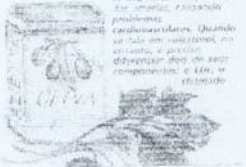 das artérias, causando
problemas
cardiovasculares. Quando
se fala em colesterol, no
entanto, é preciso
diferenciar dois de seus
componentes: o LDL, o
chamado
OLIVA